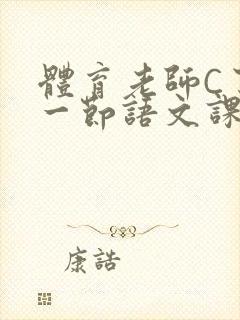 體育老師C了
一節語文課
康誥